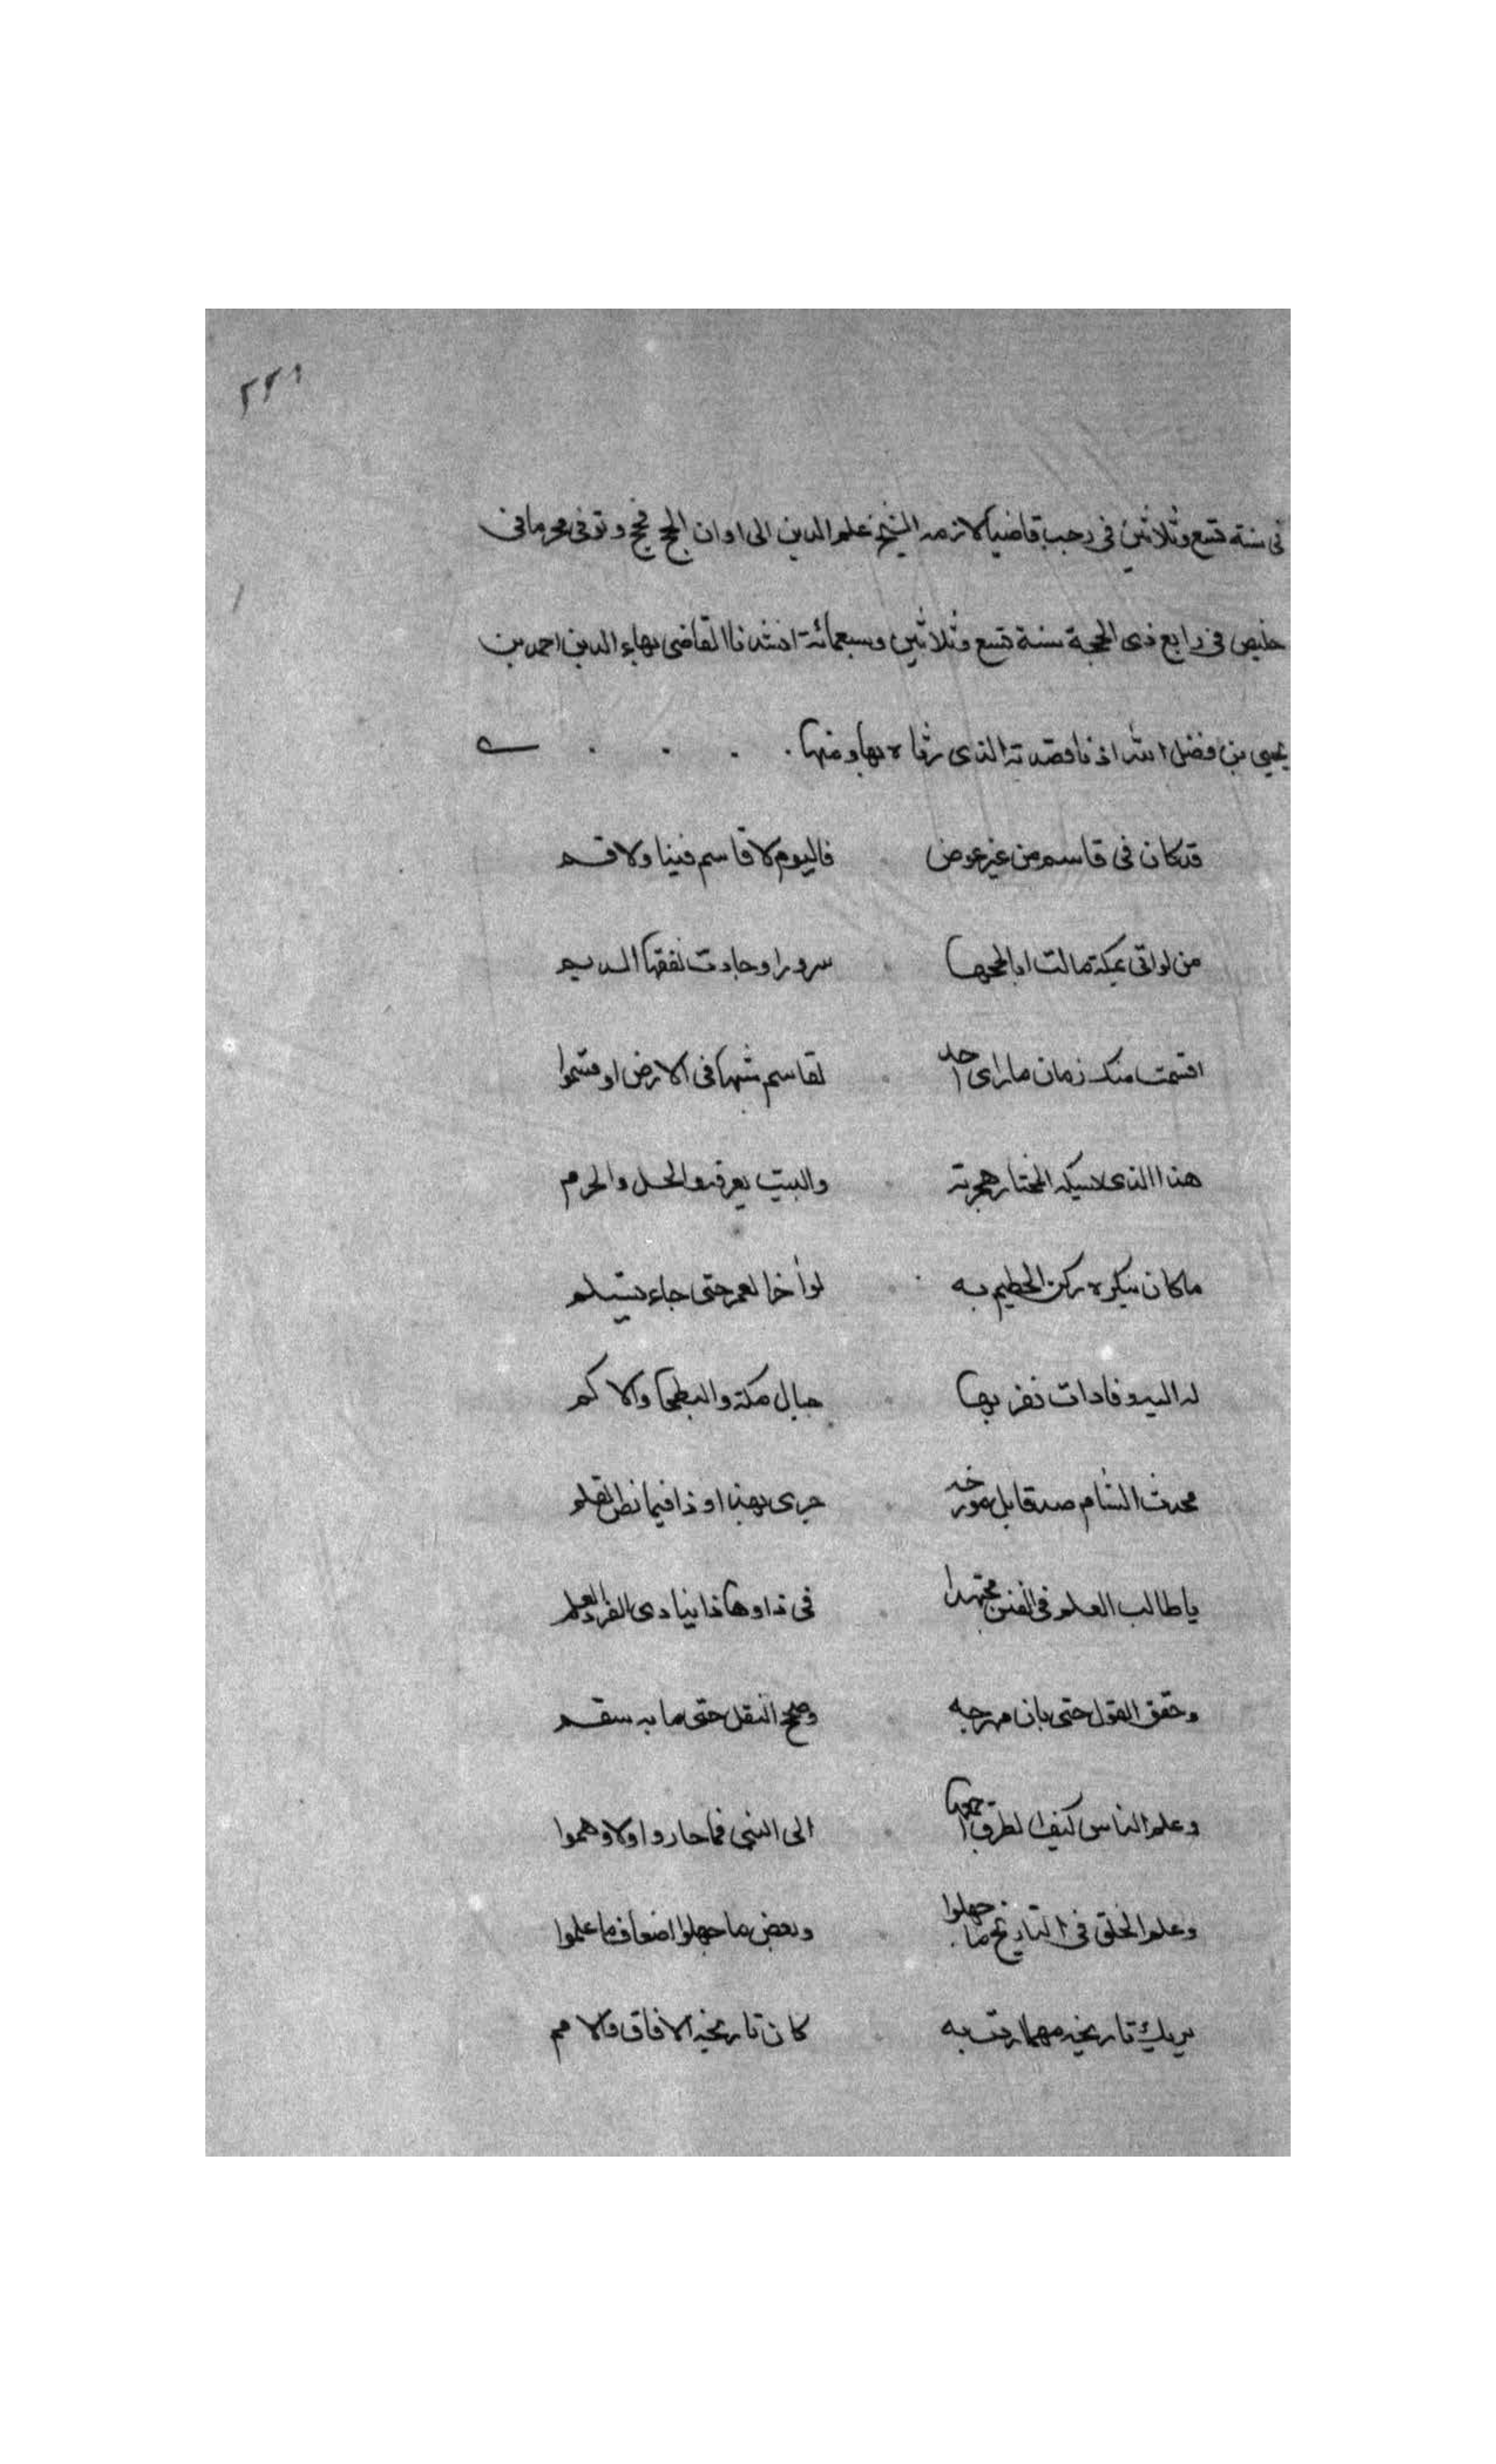 ٢٢١
في سنة تسع وثلاثين في رجب قاضيا لازمه الشيخ علم الدين الى اوان الحج فحج وتوفى محرما في
خليص في رابع ذي الحجة سنة تسع وثلاثين وسبعمائة انشدنا القاضي بهاء الدين احمد بن
يحيى بن فضل الله اذنا قصدته الذي رثاه بها ومنها
قد كان في قاسم من غير عوض فاليوم لا قاسم فينا ولا قسم
من لو اتى بمكة مالت اباطحها سرورا وجادت الديم
اقسمت منك زمان ما راى احد لقاسم شبها في الارض او قسموا
هذا الذي المختار هجرته والبيت يعرفه والحل والحرم
ما كان ينكره ركن الحطيم به لو أخر العمر حتى جاء يستلم
له اليه وفادات تقر بها جبال مكة والبطحا والاكم
محدث الشام صدقا بل مورخه جرى بهذا وذا فيما نط القلم
يا طالب العلم في الفنين مجتهدا في ذا وها ذا ينادى الفرد العلم
وحقق القول حتى بان وصحح النقل حتى ما به سقم
وعلم الناس كيف الطرق اجمعها الى النبي فما حاروا ولا وهموا
وعلم الخلق في التاريخ ما جهلوا وبعض ما جهلوا اضعاف ما علموا
يريك تاريخه مهما اردت به كان تاريخه الافاق والامم